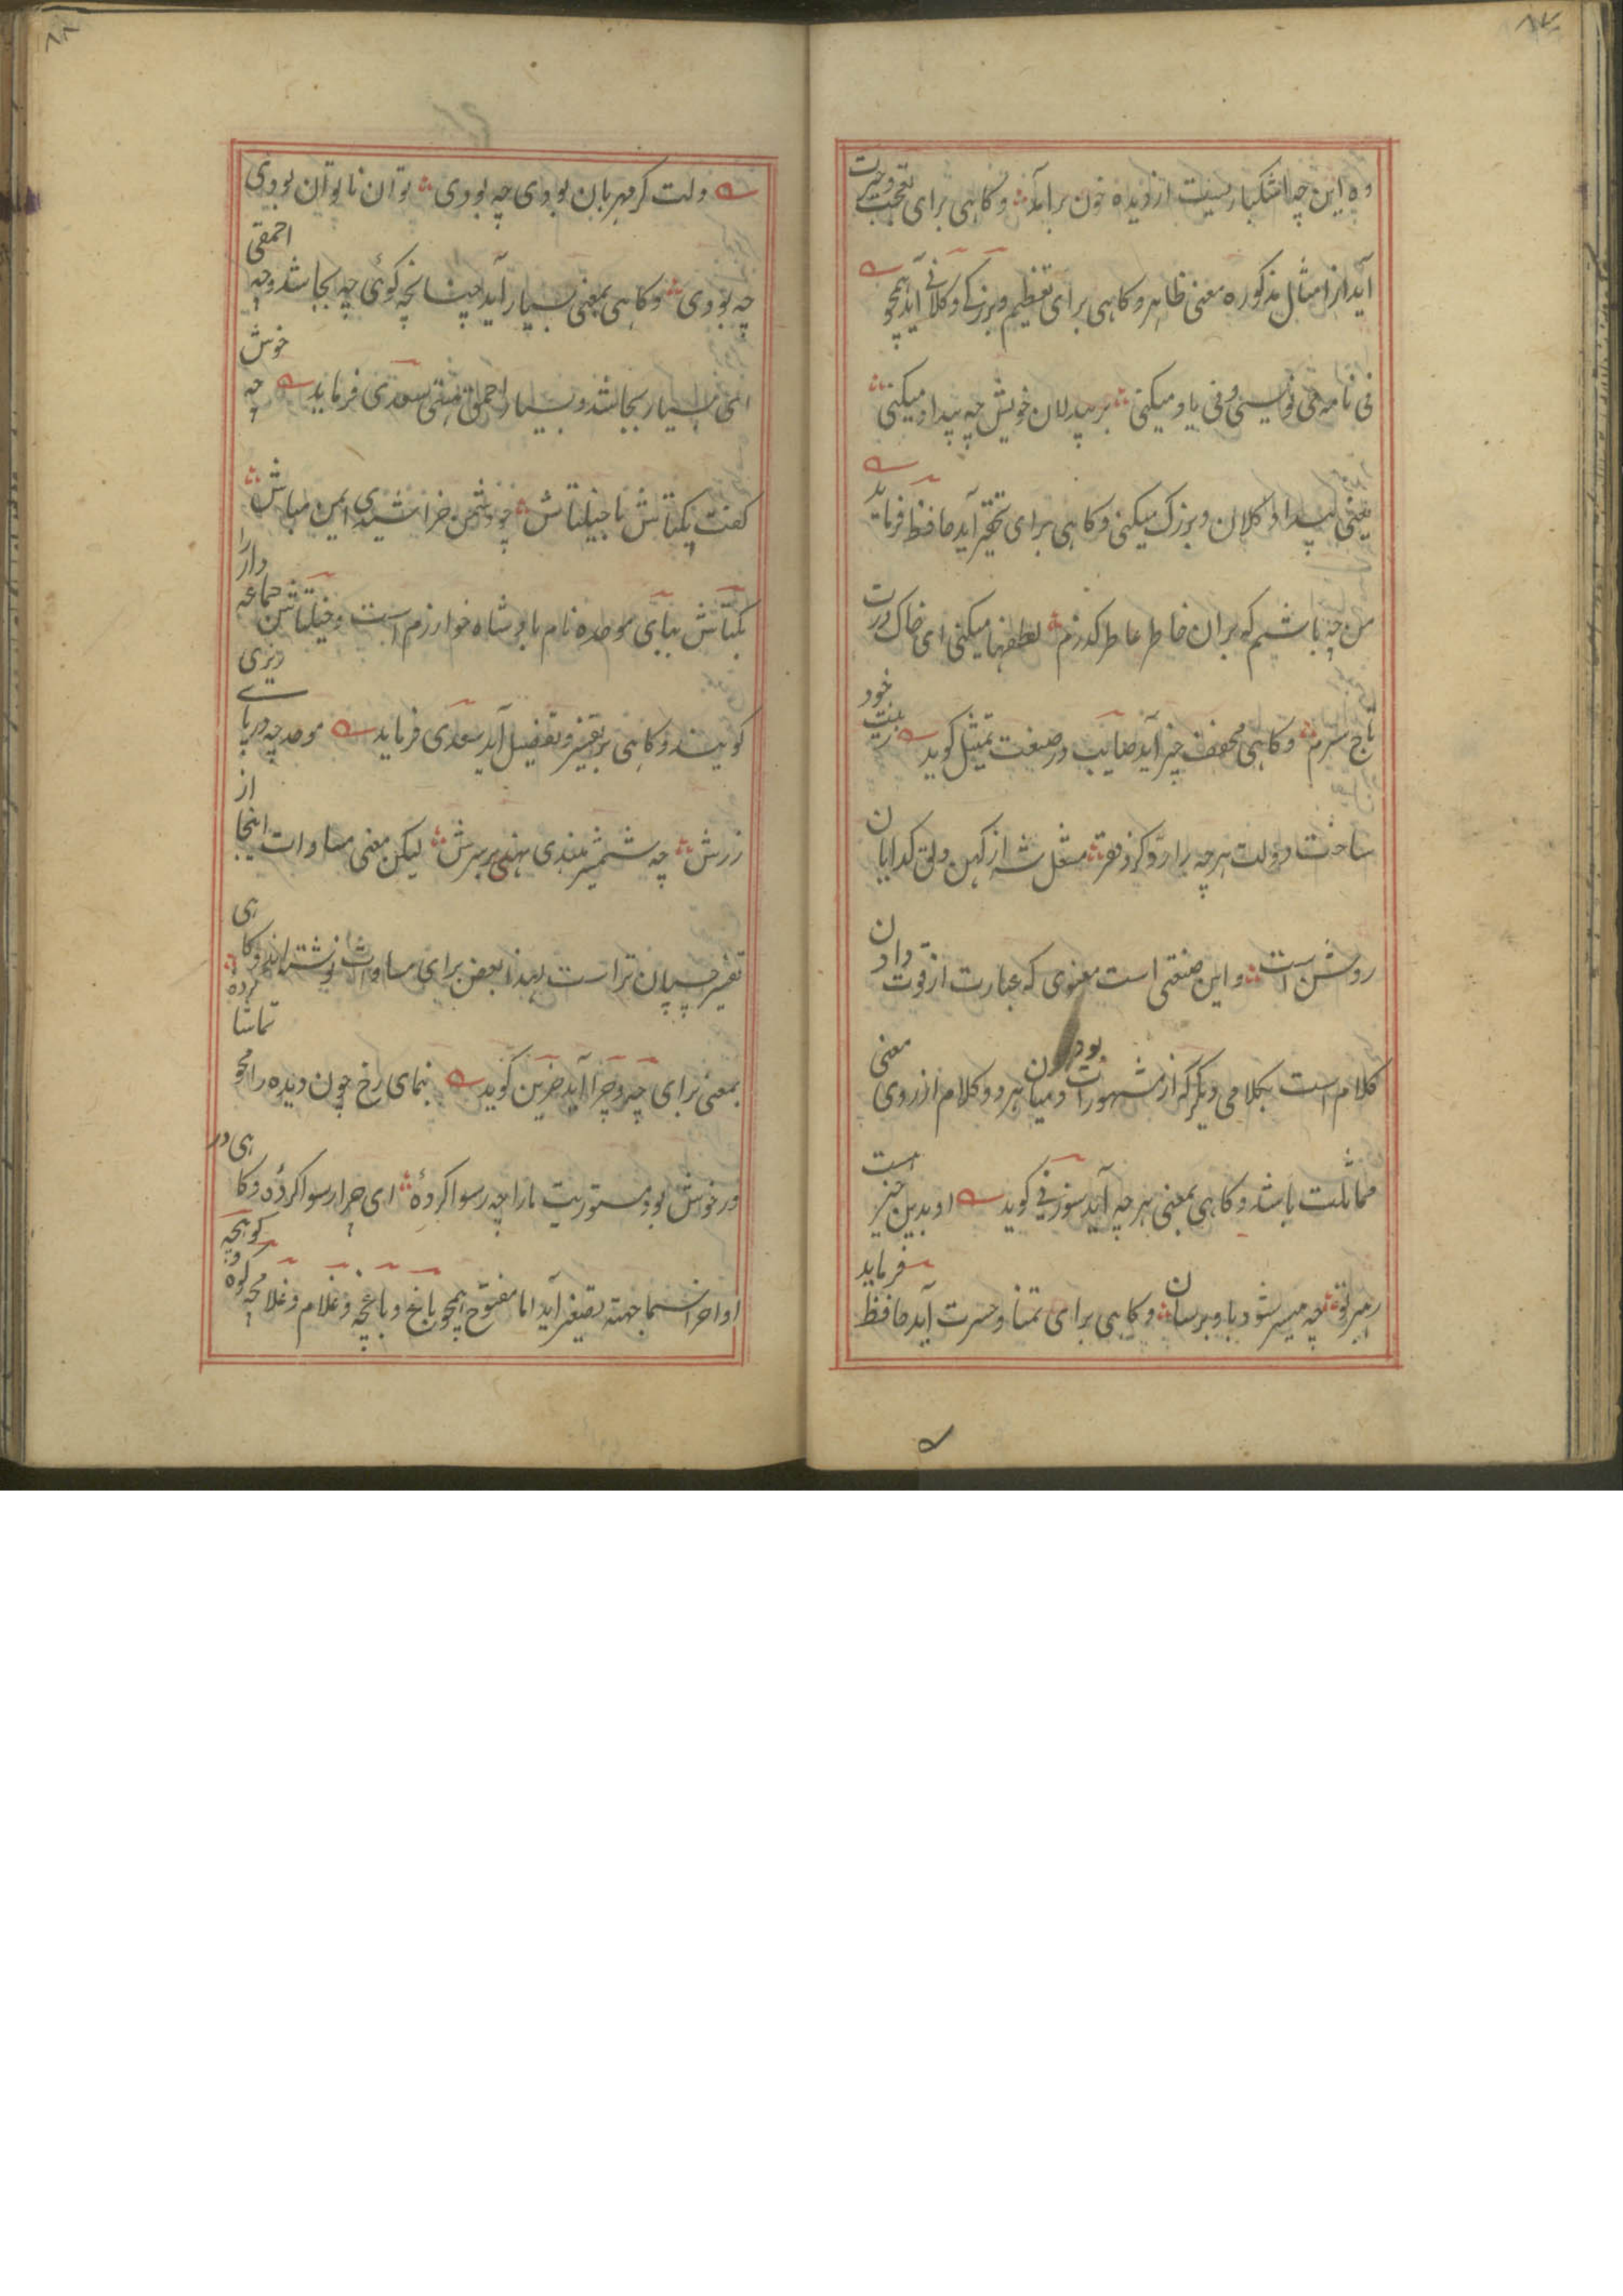 ۸۷
وه این چه اشکباریست از دیده خون برآید و کاهی برای تعجب و حیرت
آید از امثال مذکوره معنی ظاهر و کاهی برای تعظیم و بزرکی و کلانی آید همچو
نی نامه می نویسی و نی یاد میکنی بر بیدلان خویش چه بیداد میکنی
یعنی بیداد کلان و بزرک میکنی و کاهی برای تحقیر آید حافظ فرماید
من چه باشم که بران خاطر عاطر کذرم لطفها میکنی ای خاک درت
تاج سرم و کاهی مخفف چیز آید صایب در صنعت تمثیل کوید
ساخت دولت هرچه را رد کرد فقر مشعل شه از کهن دلق کدایان
روشن است و این صنعتی است معنوی که عبارت از قوت دادن
کلام است بکلامی دیکر که از مشهورات بود و میان هر دو کلام از روی معنی
مماثلت باشد و کاهی بمعنی هر چه آید سوزنی کوید او بدین خیر است
رهبر تو چه میسر شود بیا و برسان و کاهی برای تمنا و حسرت آید حافظ فرماید
۸۸
دلت کر مهربان بودی چه بودی توان ناتوان بودی
چه بودی و کاهی بمعنی بسیار آید چنانچه کوئی چه بیجا شد و چه احمقی
ای بسیار بیجا شد و بسیار احمق هستی سعدی فرماید چه خوش
کفت یکتاش با خیلتاش چو دشمن خراشیدی ایمن مباش
بکتاش ببای موحده نام بادشاه خوارزم است و خیلتاش جماعه دار را
کویند و کاهی بر تفسیر و تفصیل آید سعدی فرماید موحد چه در پا ریزی
زرش چه شمشیر هندی نهی بر سرش لیکن معنی مساوات از اینجا
تفسیر چسپان تر است لهذا بعض برای مساوات نوشته اند و کاهی
بمعنی برای چه و چرا آید حزین کوید بنمای رخ چون دیده را محو تماشا کرده
در خوش بود مستوریت ما را چه رسوا کردهٔ ای چرا رسوا کردهٔ و کاهی در
اواخر اسما جهته تصغیر آید اما مفتوح همچو باغ و باغچه و غلام و غلامچه و کوه کوهچه